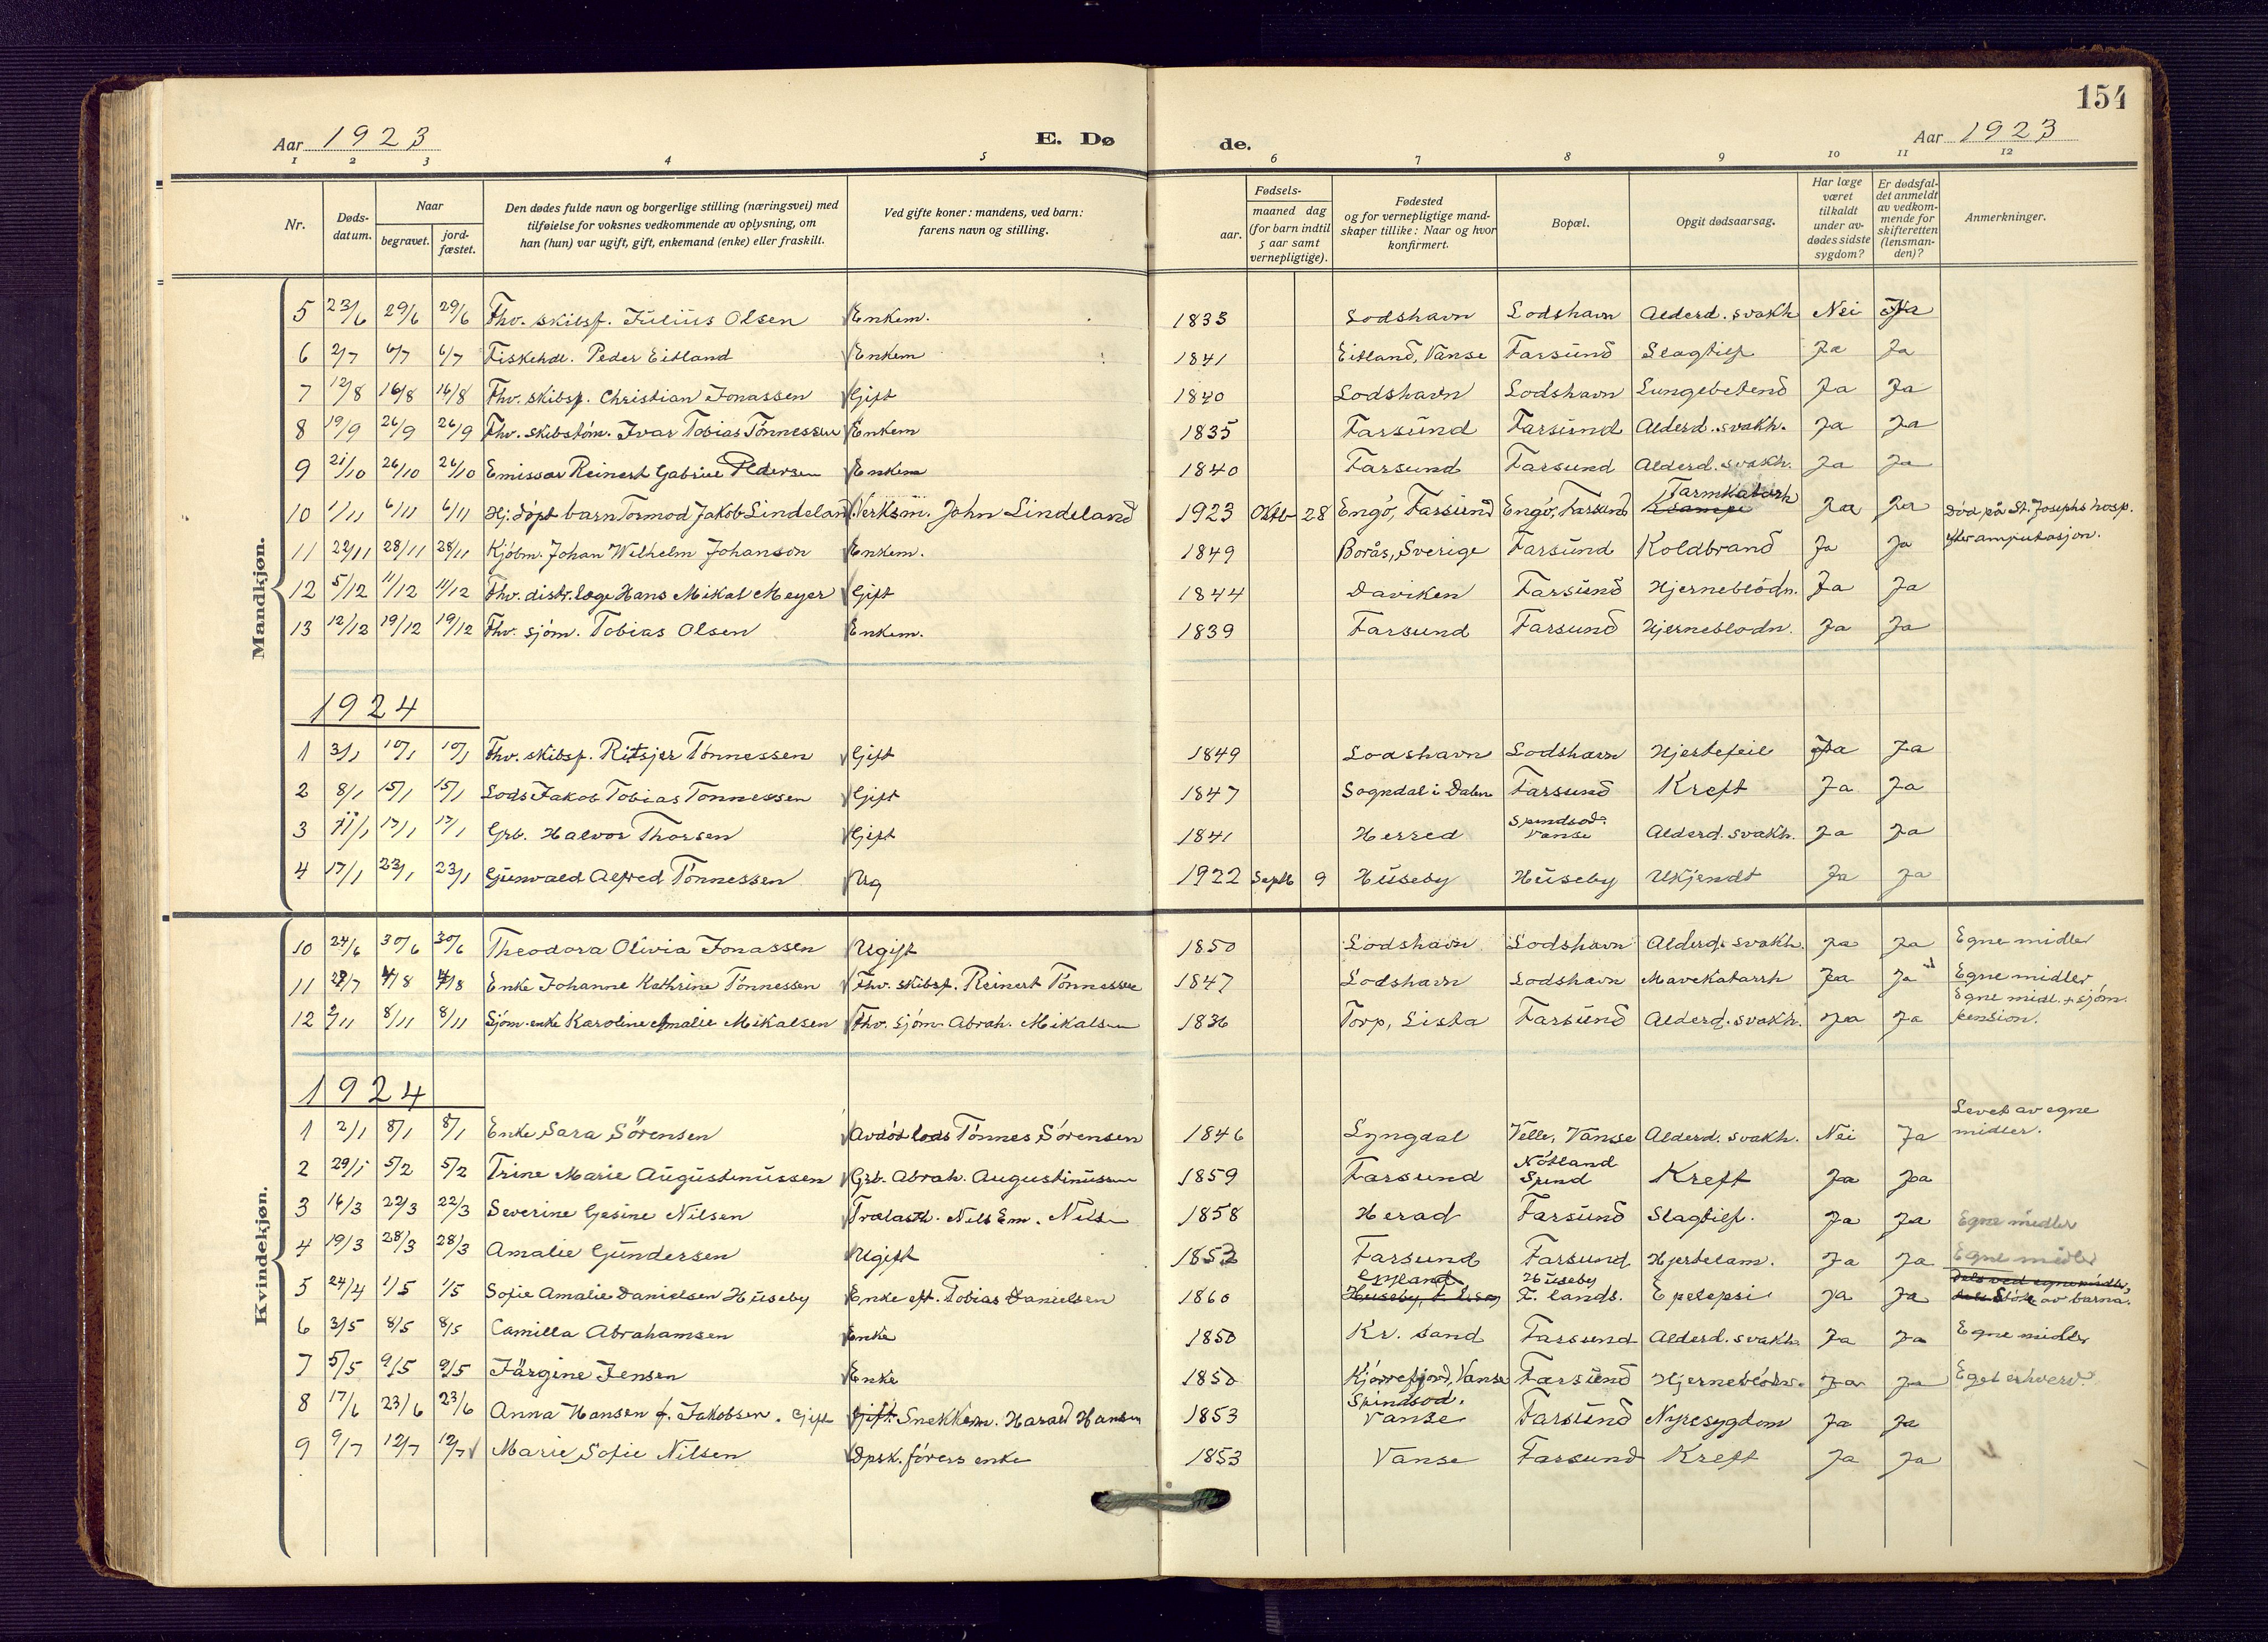 154
Aar 1923 E. Dø de. Aar 1923
1 2 3 4 5 6 7 8 9 10 11 12
Nr. Døds-datum. Naar begravet. jord-fæstet. Den dødes fulde navn og borgerlige stilling (næringsvei) med tilføielse for voksnes vedkommende av oplysning, om han (hun) var ugift, gift, enkemand (enke) eller fraskilt. Ved gifte koner: mandens, ved barn: farens navn og stilling. Fødsels- aar. maaned dag (for barn indtil 5 aar samt vernepligtige). Fødested og for vernepligtige mand-skaper tillike: Naar og hvor konfirmert. Bopæl. Opgit dødsaarsag. Har læge været tilkaldt under av-dødes sidste sygdom? Er dødsfal-det anmeldt av vedkom-mende for skifteretten (lensman-den)? Anmerkninger.
Mandkjøn.
5 23/6 29/6 29/6 Fhv. skibsf. Julius Olsen Enkem. 1833 Lodshavn Lodshavn Alderd. svakh Nei Ja
6 2/7 6/7 6/7 Fiskehdl. Peder Eitland Enkem 1841 Eitland, Vanse Farsund Slagtilf Ja Ja
7 12/8 16/8 16/8 Fhv. skibsf. Christian Jonassen Gift 1840 Lodshavn Lodshavn Lungebetend Ja Ja
8 19/9 26/9 26/9 Fhv. skibstöm. Ivar Tobias Tönnessen Enkem 1835 Farsund Farsund Alderd. svakh. Ja Ja
9 21/10 26/10 26/10 Emissær Reinert Gabriel Pedersen Enkem 1840 Farsund Farsund Alderd. svakh. Ja Ja
10 1/11 6/11 6/11 Hj. döpt barn Tormod Jakob Lindeland Verksm. John Lindeland 1923 Oktb 28 Engö, Farsund Engö, Farsund Tarmkatarh Ja Ja
11 22/11 28/11 28/11 Kjöbm. Johan Wilhelm Johanson Enkem. 1849 Borås, Sverige Farsund Koldbrand Ja Ja Död på St. Josephs hosp. efter amputasjon.
12 5/12 11/12 11/12 Fhv. distr. læge Hans Mikal Meyer Gift 1844 Daviken Farsund Hjerneblödn. Ja Ja
13 12/12 19/12 19/12 Fhv. sjöm. Tobias Olsen Enkem. 1839 Farsund Farsund Hjerneblodn. Ja Ja
1924
1 3/1 10/1 10/1 Fhv. skibsf. Ritsjer Tönnessen Gift 1849 Lodshavn Lodshavn Hjertefeil Ja Ja
2 8/1 15/1 15/1 Lods Jakob Tobias Tonnessen Gift 1847 Sogndal i Dalen Farsund Kreft Ja Ja
3 11/1 17/1 17/1 Grb. Halvor Thorsen Gift 1841 Herred Spindsod. Vanse Alderd. svakh. Ja Ja
4 17/1 23/1 23/1 Gunvald Alfred Tönnessen Ug 1922 Septb 9 Huseby Huseby Ukjendt Ja Ja
Kvindekjøn.
10 24/6 30/6 30/6 Theodora Olivia Jonassen Ugift 1850 Lodshavn Lodshavn Alderd. svakh. Ja Ja Egne midler
11 28/7 4/8 4/8 Enke Johanne Kathrine Tönnessen Fhv. skibsf. Reinert Tönnessen 1847 Lodshavn Lodshavn Mavekatarrh Ja Ja Egne midler
12 2/11 8/11 8/11 Sjöm. enke Karoline Amalie Mikalsen Fhv. sjöm. Abrah. Mikalsen 1836 Torp, Lista Farsund Alderd. svakh. Ja Ja Egne midl. + sjöm. pension.
1924
1 2/1 8/1 8/1 Enke Sara Sörensen Avdöd lods Tönnes Sörensen 1846 Lyngdal Velle, Vanse Alderd. svakh. Nei Ja Levet av egne midler.
2 29/1 5/2 5/2 Trine Marie Augustinussen Grb. Abrah. Augustinussen 1859 Farsund Nötland Spind Kreft Ja Ja
3 16/3 22/3 22/3 Severine Gesine Nilsen Trælasth. Nils Em. Nilsen 1858 Herad Farsund Slagtilf. Ja Ja Egne midler
4 19/3 28/3 28/3 Amalie Gundersen Ugift 1853 Farsund Farsund Hjertelam. Ja Ja Egne midler
5 24/4 1/5 1/5 Sofie Amalie Danielsen Huseby Enke eft. Tobias Danielsen 1860 Huseby, Huseby F. lands. Epelepsi Ja Ja Dels ved egne midler, dels av barna.
6 3/5 8/5 8/5 Camilla Abrahamsen Enke 1850 Kr. sand Farsund Alderd. svakh. Ja Ja Egne midler
7 5/5 9/5 9/5 Järgine Jensen Enke 1850 Kjörrefjord, Vanse Farsund Hjerneblödn. Ja Ja Eget erhverv.
8 17/6 23/6 23/6 Anna Hansen f. Jakobsen. Gift Gift Snekkerm. Harald Hansen 1853 Spindsod. Vanse Farsund Nyresygdom Ja Ja
9 9/7 12/7 12/7 Marie Sofie Nilsen Dpsk. förers enke 1853 Vanse Farsund Kreft Ja Ja